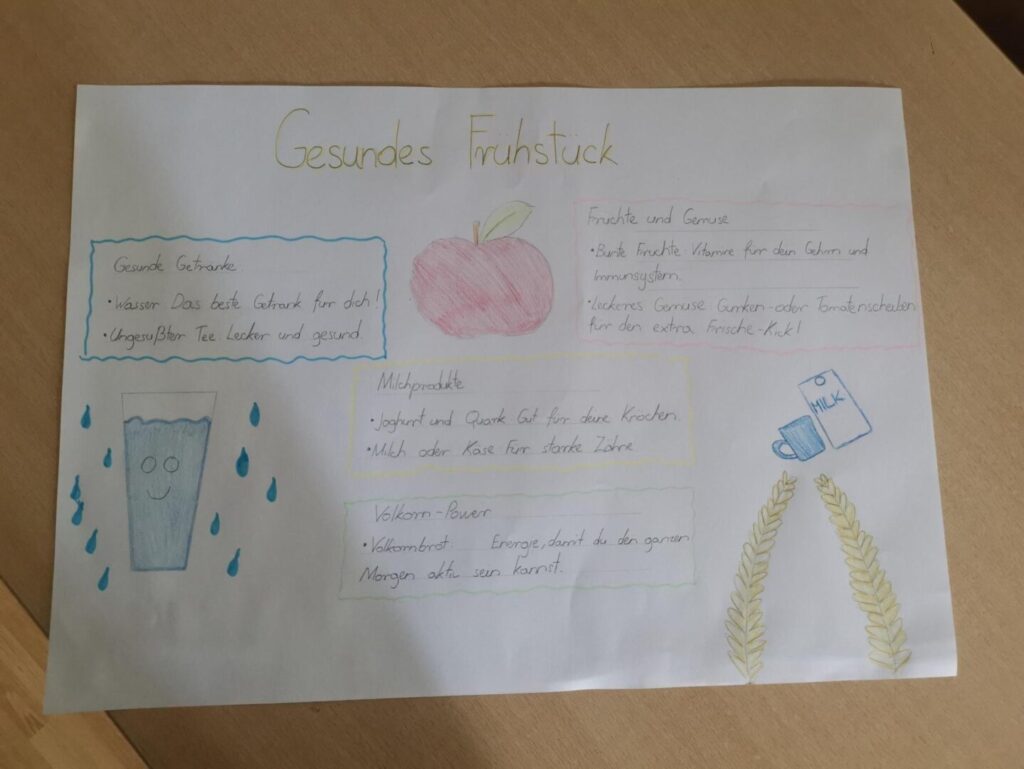 Gesundes Frühstück
Gesunde Getränke
• Wasser Das beste Getränk für dich!
• Ungesüßter Tee: Lecker und gesund.
Früchte und Gemüse
• Bunte Früchte Vitamine für dein Gehirn und
Immunsystem.
• Leckeres Gemüse Gurken- oder Tomatenscheiben
für den extra Frische-Kick!
Milchprodukte
• Joghurt und Quark Gut für deine Knochen.
• Milch oder Käse Für starke Zähne
Volkorn-Power
• Volkornbrot: Energie, damit du den ganzen
Morgen aktiv sein kannst.
MILK